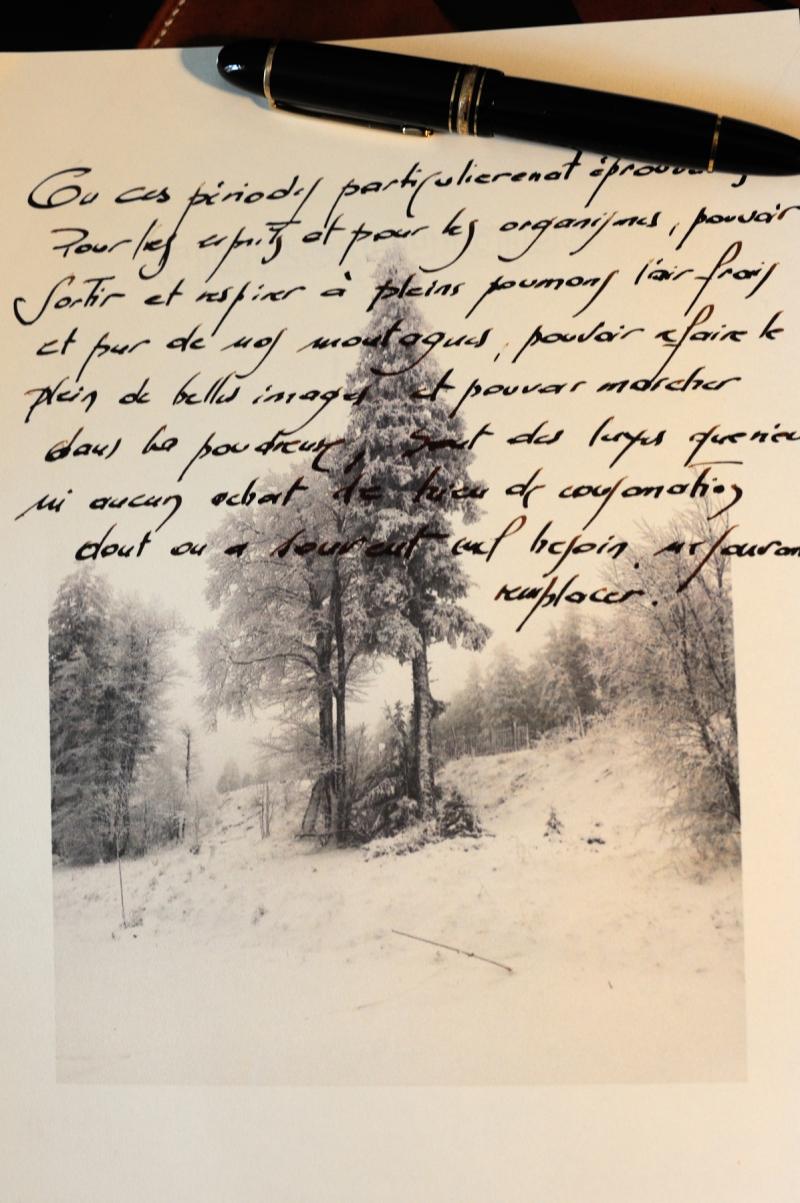 En ces périodes particulièrement éprouvantes
Pour les esprits et pour les organismes, pouvoir
Sortir et respirer à pleins poumons l'air frais
et pur de nos montagnes, pouvoir refaire le
plein de belles images et pouvoir marcher
dans la poudreuse, sont des luxes que rien
ni aucun achat de lieu de consomation
dont on a souvent nul besoin, ne sauront
remplacer.